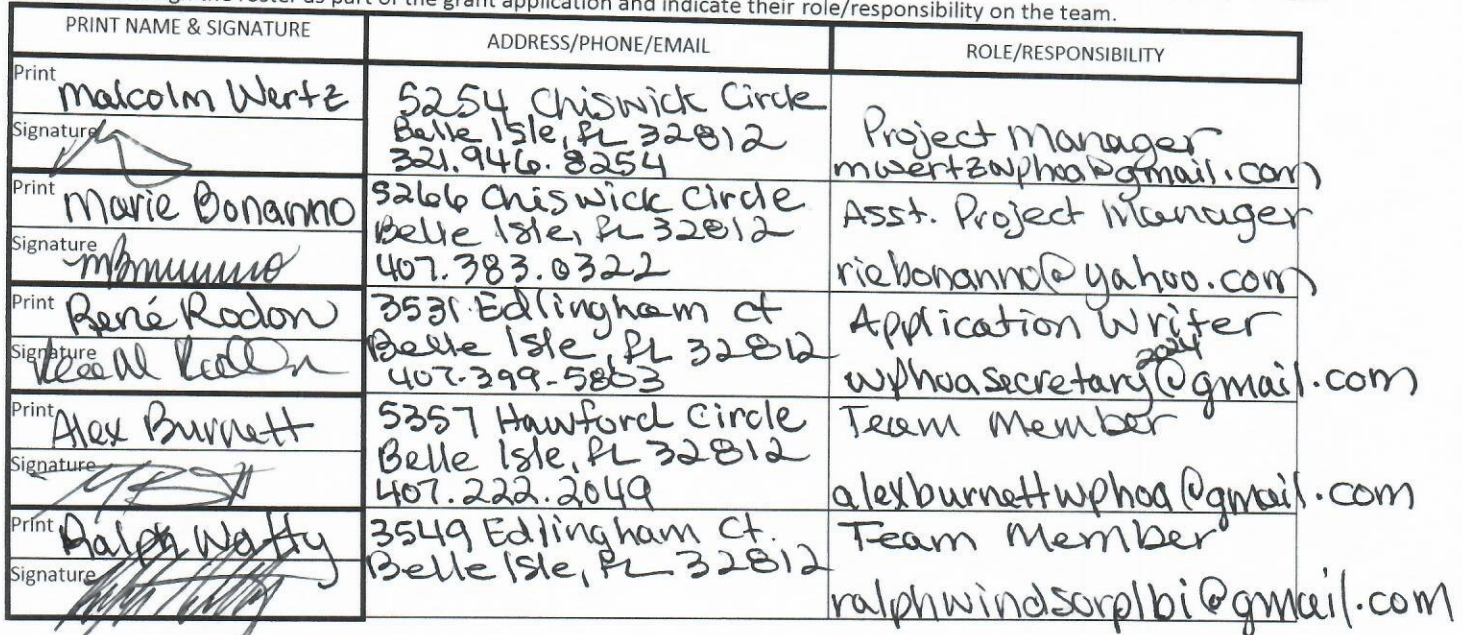 the roster as part of the grant application and indicate their role/responsibility on the team.
PRINT NAME & SIGNATURE
ADDRESS/PHONE/EMAIL
ROLE/RESPONSIBILITY
Print Malcolm Wertz
Signature
5254 Chiswick Circle
Belle Isle, FL 32812
321.946.8254
Project Manager
mwertzwphoa@gmail.com
Print Marie Bonanno
Signature
5266 Chiswick Circle
Belle Isle, FL 32812
407.383.0322
Asst. Project Manager
riebonanno@yahoo.com
Print René Rodon
Signature
3531 Edlingham Ct
Belle Isle, FL 32812
407-399-5803
Application Writer
wphoasecretary2024@gmail.com
Print Alex Burnett
Signature
5357 Hawford Circle
Belle Isle, FL 32812
407.222.2049
Team Member
alexburnettwphoa@gmail.com
Print Ralph Watty
Signature
3549 Edlingham Ct.
Belle Isle, FL 32812
Team Member
ralphwindsorplbi@gmail.com